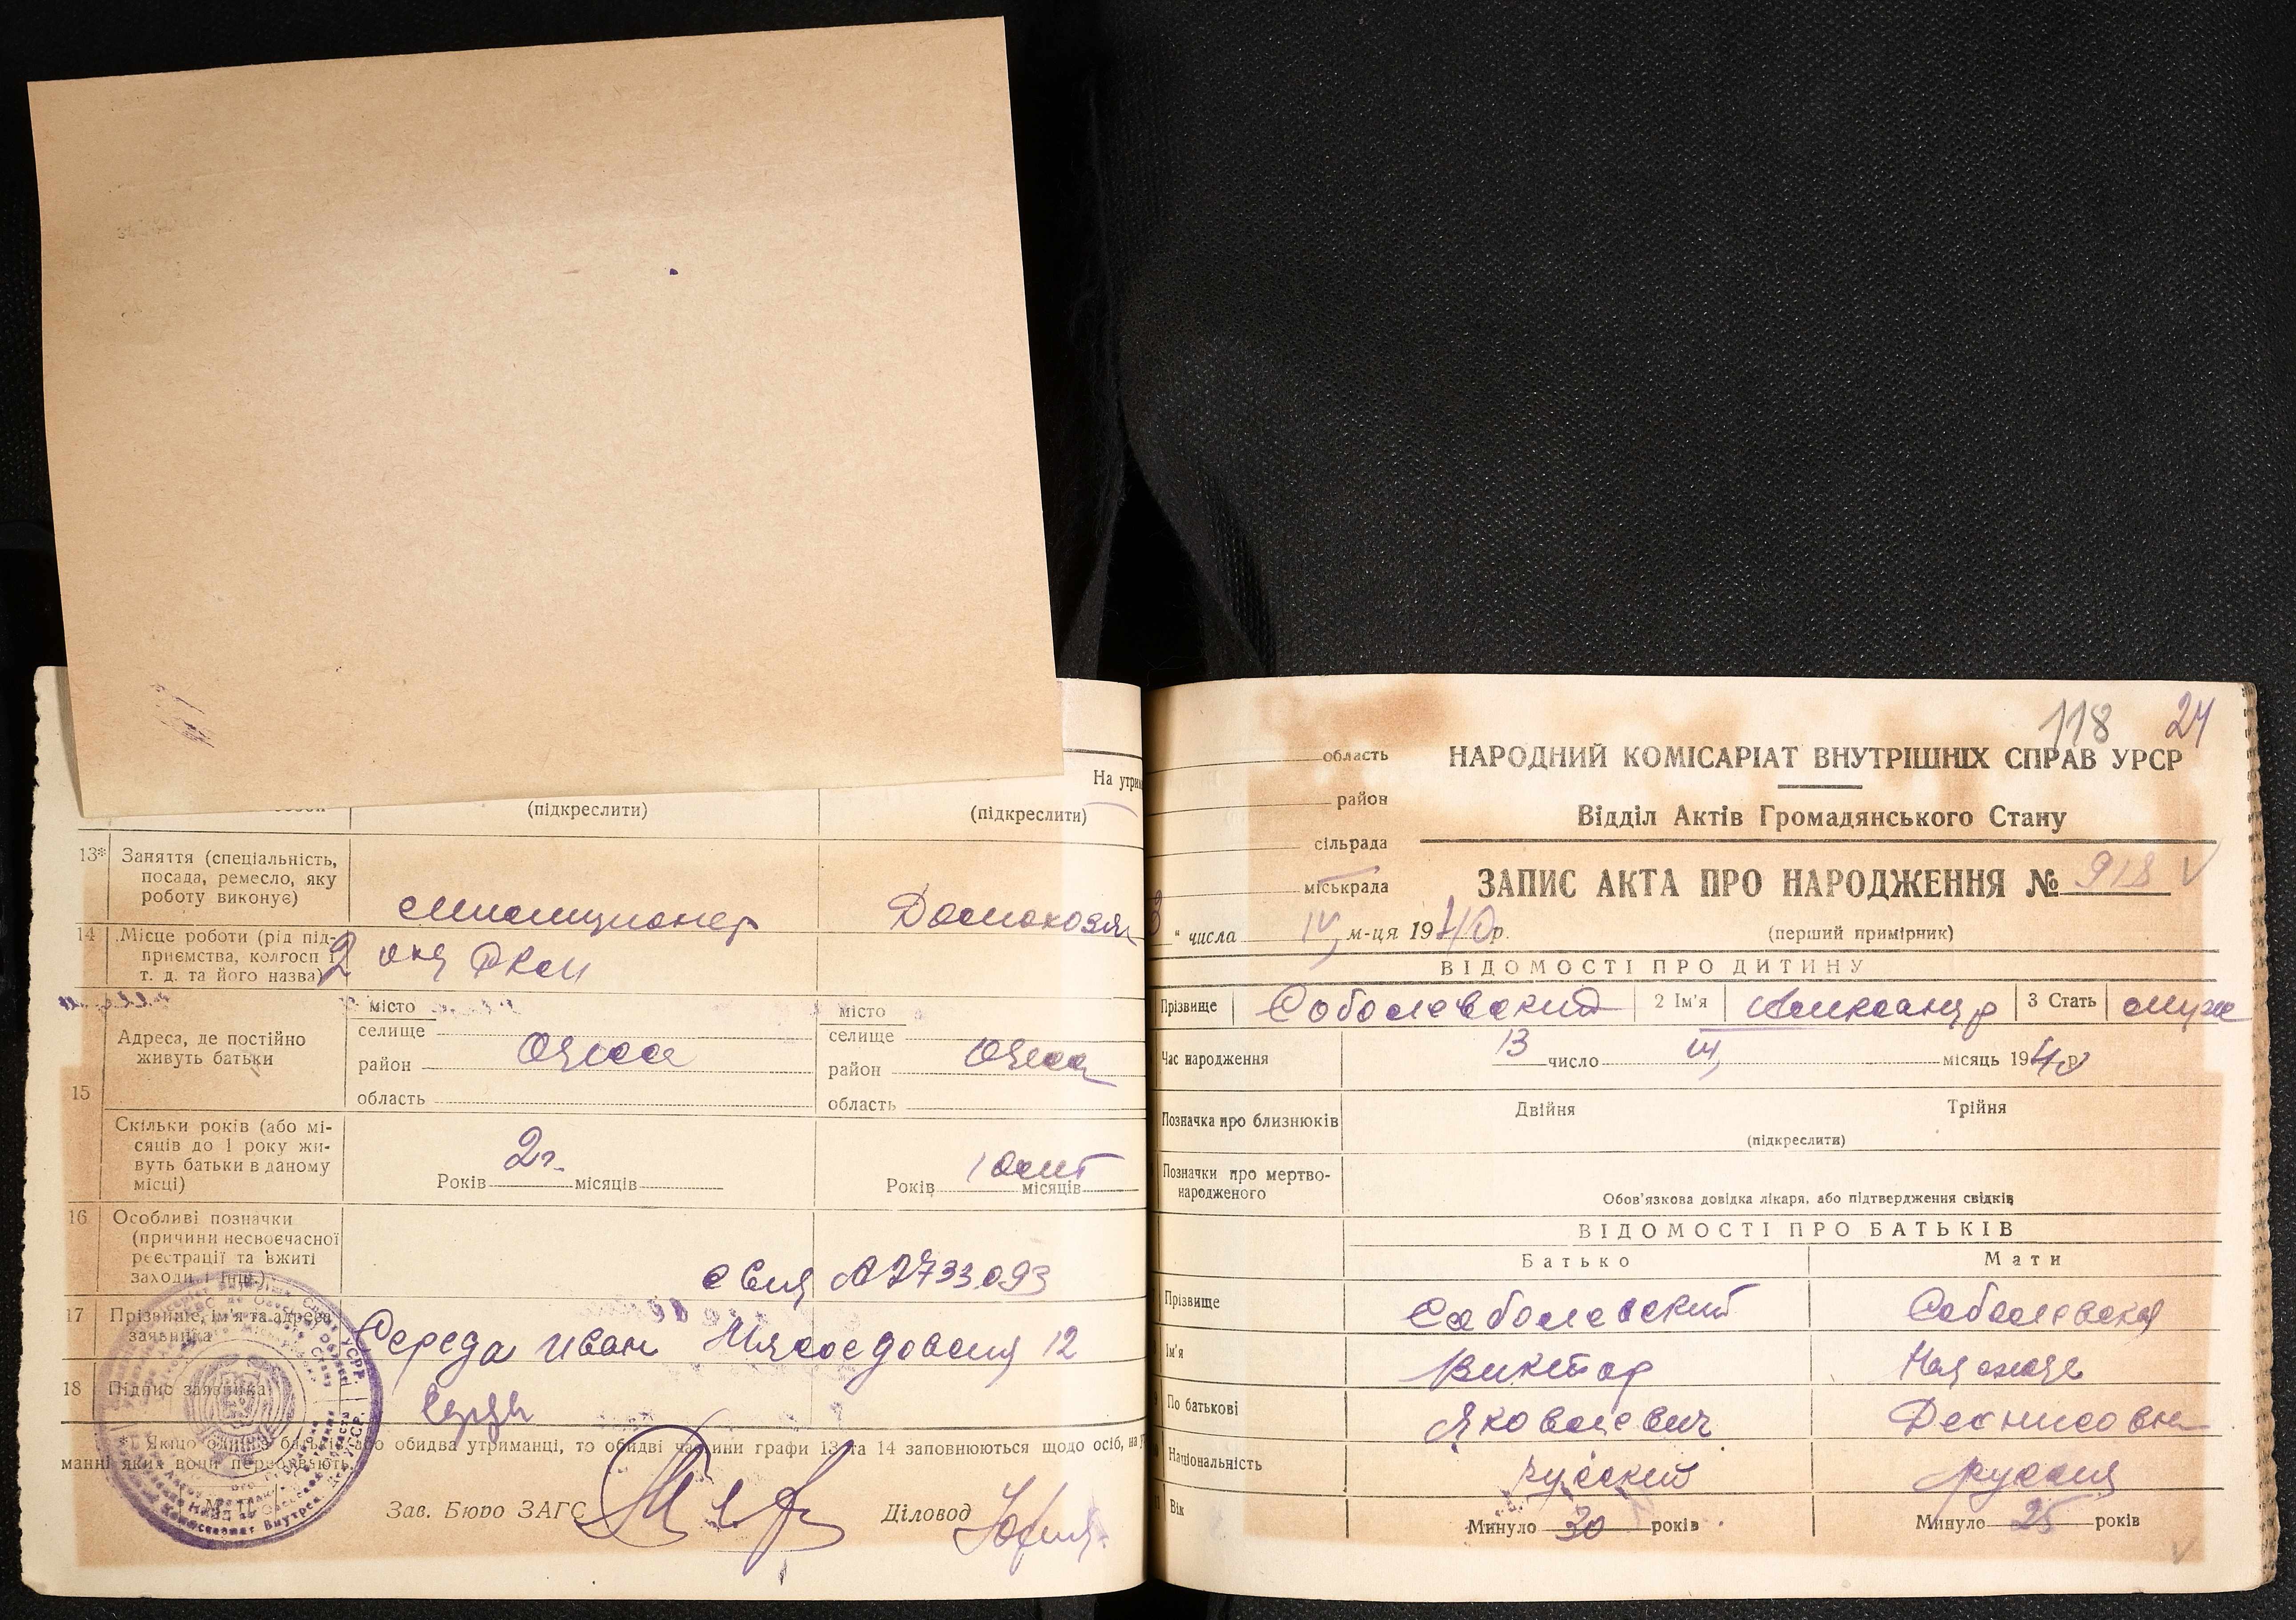 На утрим
(підкреслити)
(підкреслити)
13* Заняття (спеціальність, посада, ремесло, яку роботу виконує)
милиционер
Домохозяй
14 Місце роботи (рід підприємства, колгосп і т. д. та його назва)
2 отд РКМ
15 Адреса, де постійно живуть батьки
місто
селище
район
область
Одесса
місто
селище
район
область
Одесса
Скільки років (або місяців до 1 року живуть батьки в даному місці)
2 г. Років місяців
Років місяців
16 Особливі позначки (причини несвоєчасної реєстрації та вжиті заходи і інш.)
2733093
17 Прізвище, ім'я та адреса заявника
Середа Иван Мясоедовская 12
18 Підпис заявника
* Якщо один з батьків або обидва утриманці, то обидві частини графи 13 та 14 заповнюються щодо осіб, на у
манні яких вони перебувають.
М. П.
Зав. Бюро ЗАГС
Діловод
118 24
область
район
сільрада
міськрада
НАРОДНИЙ КОМІСАРІАТ ВНУТРІШНІХ СПРАВ УРСР
Відділ Актів Громадянського Стану
ЗАПИС АКТА ПРО НАРОДЖЕННЯ № 918
3 " числа IV м-ця 1940 р.
(перший примірник)
ВІДОМОСТІ ПРО ДИТИНУ
Прізвище Соболевский 2 Ім'я Александр 3 Стать муж
Час народження 13 число III місяць 1940 р.
Позначка про близнюків Двійня Трійня
(підкреслити)
Позначки про мертвонародженого
Обов'язкова довідка лікаря, або підтвердження свідків
ВІДОМОСТІ ПРО БАТЬКІВ
Батько Мати
Прізвище Соболевский Соболевская
Ім'я Виктор Надежда
По батькові Яковлевич Денисовн
Національність русский русская
Вік Минуло 30 років Минуло 25 років